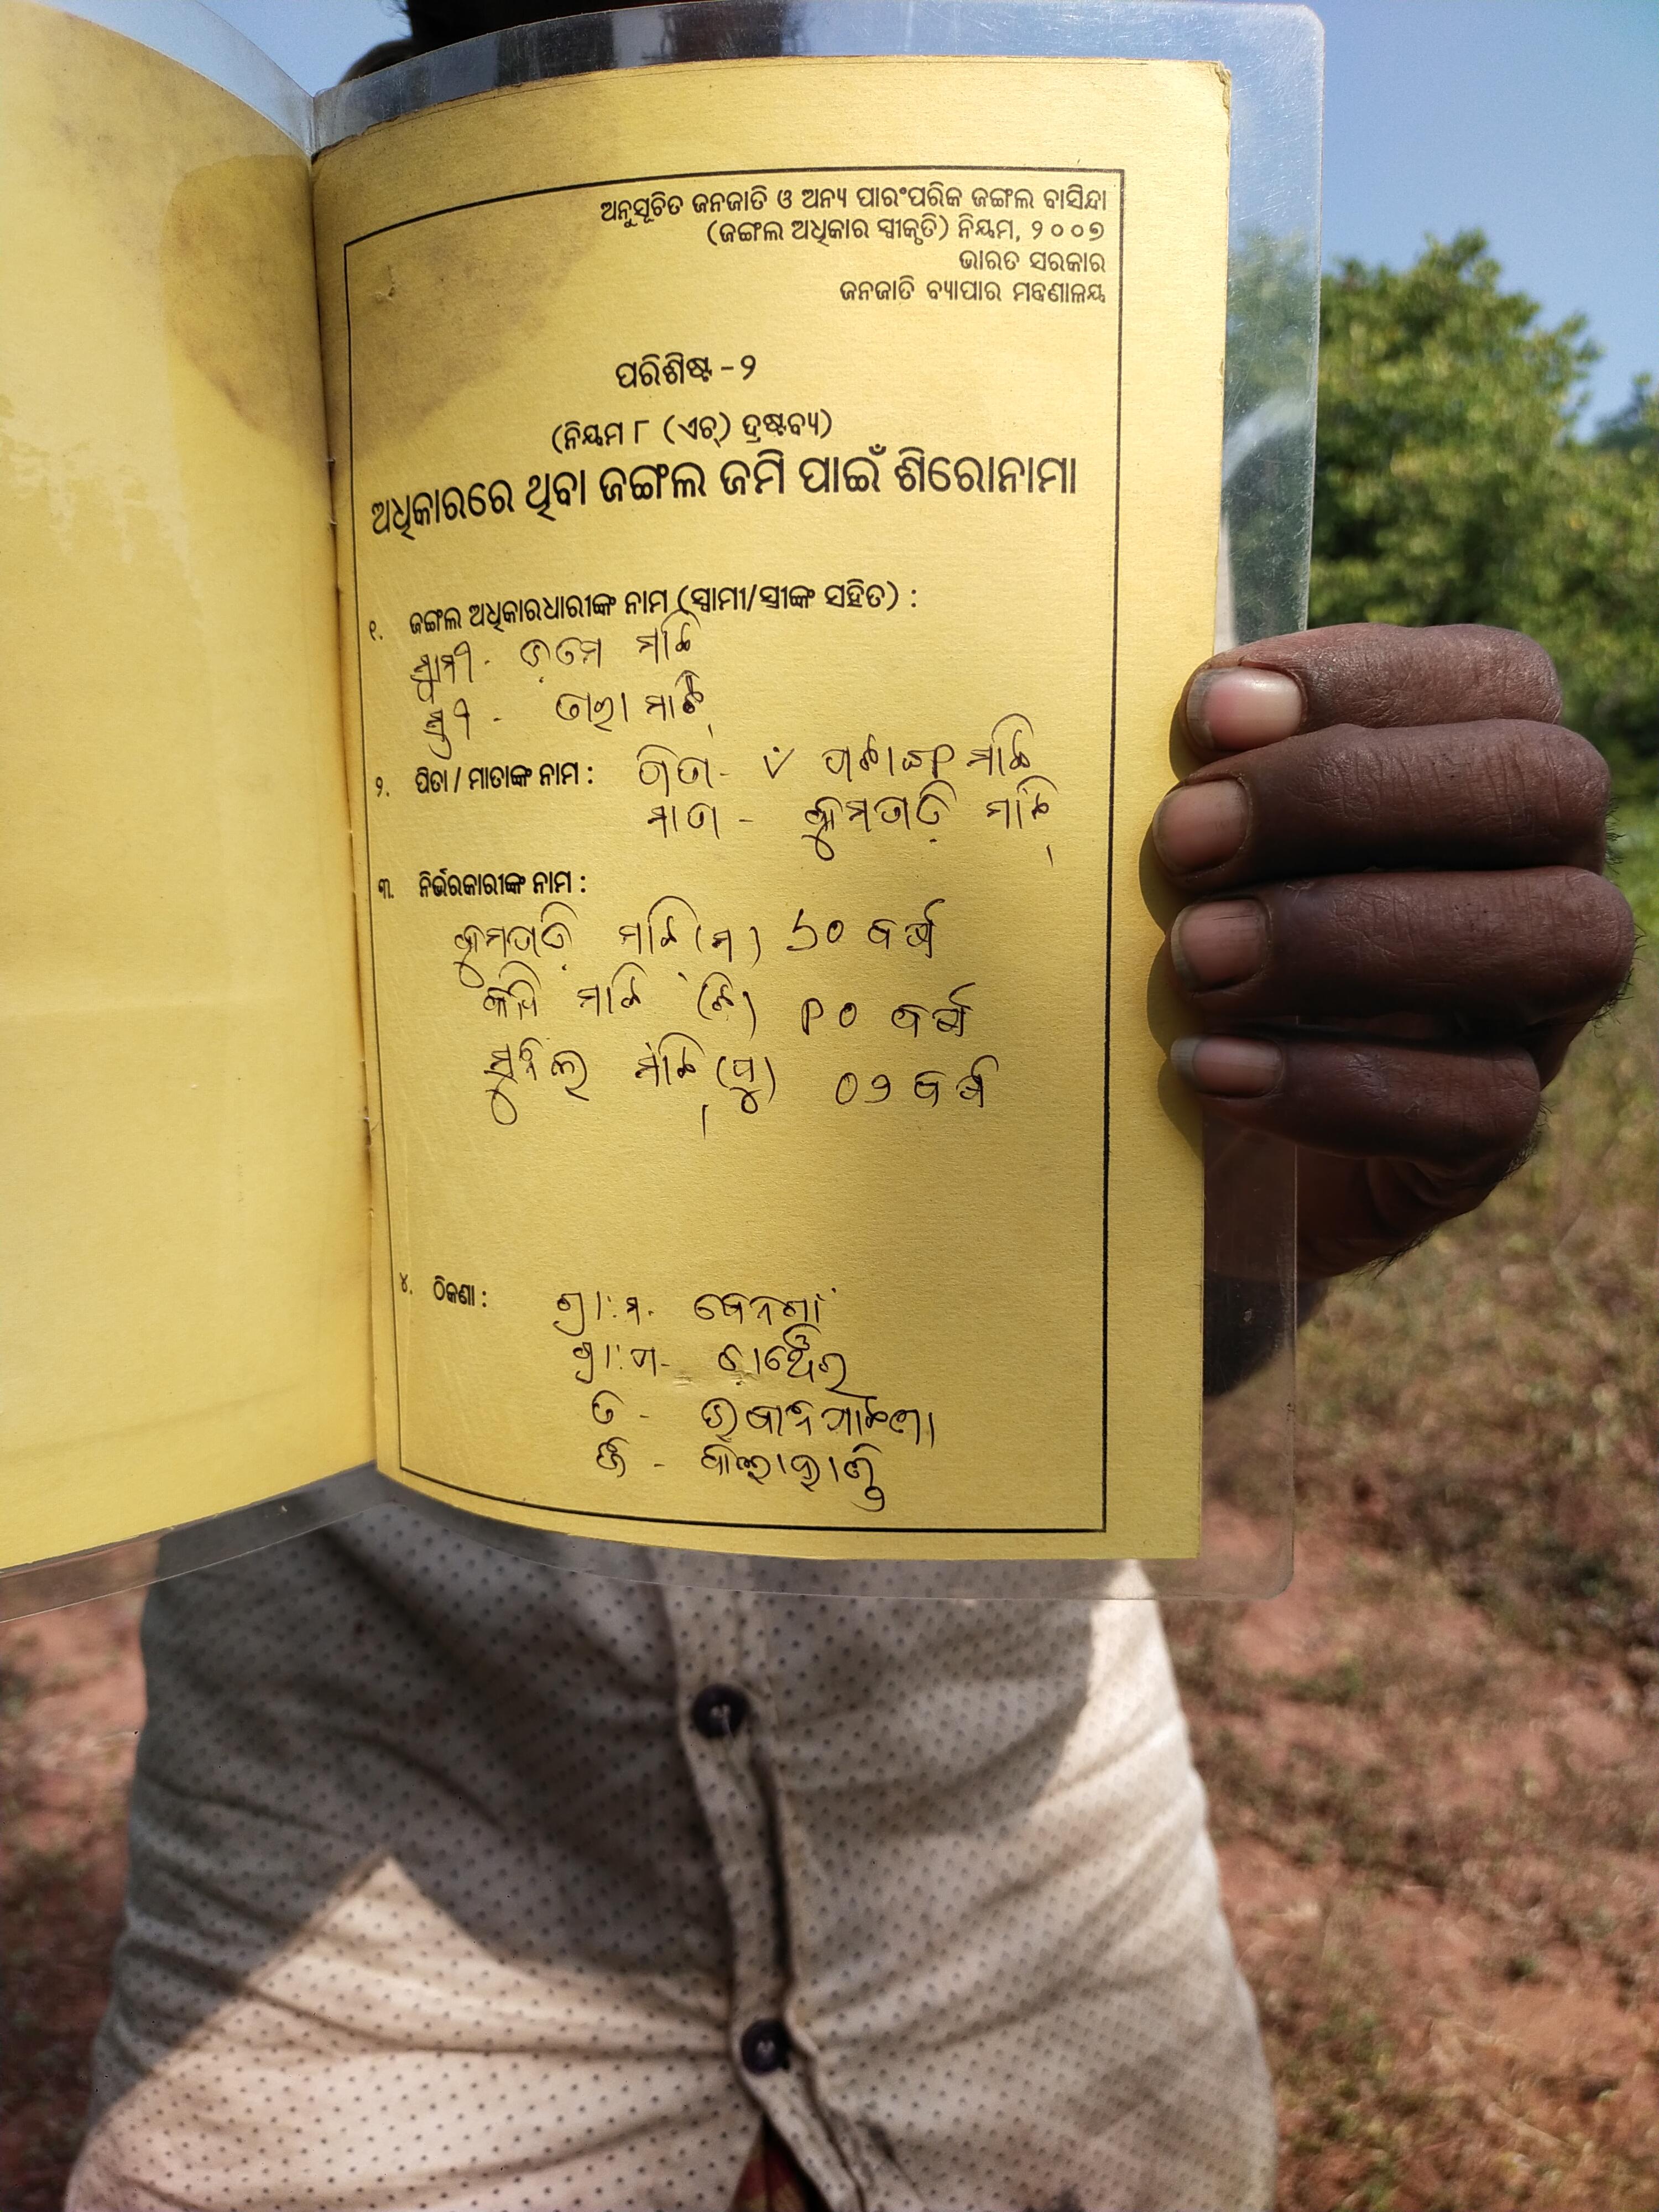 ଅନୁସୂଚିତ ଜନଜାତି ଓ ଅନ୍ୟ ପାରଂପରିକ ଜଙ୍ଗଲ ବାସିନ୍ଦା
(ଜଙ୍ଗଲ ଅଧିକାର ସ୍ୱୀକୃତି) ନିୟମ, ୨୦୦୭
ଭାରତ ସରକାର
ଜନଜାତି ବ୍ୟାପାର ମନ୍ତ୍ରଣାଳୟ
ପରିଶିଷ୍ଟ - ୨
(ନିୟମ ୮ (ଏଚ୍) ଦ୍ରଷ୍ଟବ୍ୟ)
ଅଧିକାରରେ ଥିବା ଜଙ୍ଗଲ ଜମି ପାଇଁ ଶିରୋନାମା
୧. ଜଙ୍ଗଲ ଅଧିକାରଧାରୀଙ୍କ ନାମ (ସ୍ୱାମୀ/ସ୍ତ୍ରୀଙ୍କ ସହିତ) :
ସ୍ୱାମୀ - ମାଝି
ସ୍ତ୍ରୀ - ମାଝି
୨. ପିତା / ମାତାଙ୍କ ନାମ : ପିତା - ମାଝି
ମାତା - ମାଝି
୩. ନିର୍ଭରକାରୀଙ୍କ ନାମ :
ମାଝି (ମା) ବର୍ଷ
ମାଝି (ଝି) ୧୦ ବର୍ଷ
ସୁନିଲ ମାଝି (ପୁ) ୦୨ ବର୍ଷ
୪. ଠିକଣା : ଗ୍ରା:ମ -
ଗ୍ରା:ପ -
ତ - ଭବାନୀପାଟଣା
ଜି - କଳାହାଣ୍ଡି